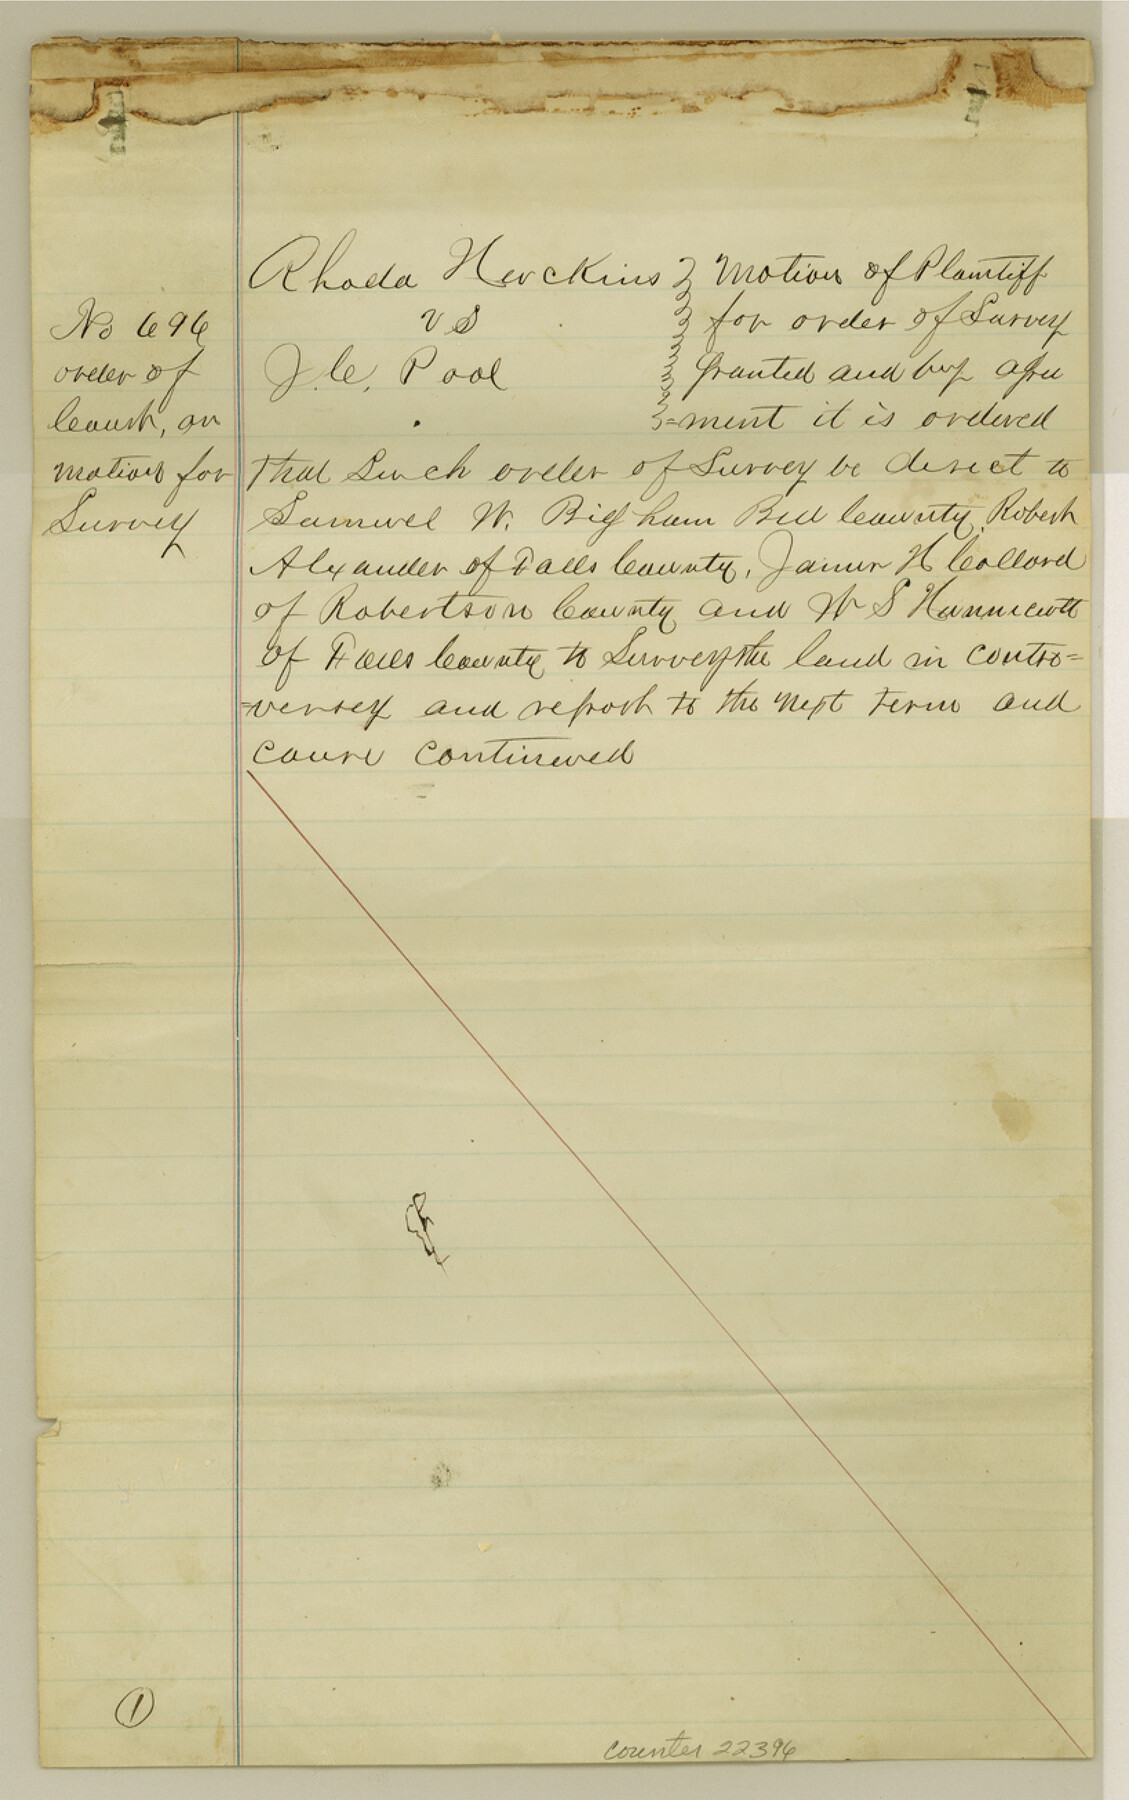 Rhoda Herckins } Motion of Plaintiff
No 696
vs
for order of Survey
order of
J. C. Pool
Granted and by agree
Court, on
=ment it is ordered
motion for
that Such order of Survey be direct to
Survey
Samuel W. Bigham Bell County, Robert
Alexander of Falls County, James H Collard
of Robertson County and W S Hunnicutt
of Falls County to Survey the land in contro=
=versey and report to the next term and
cause continued
1
counter 22396